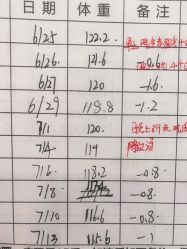 日期 体重 备注
6/25 122.2.
6/26 121.6 -0.6
6/27 120 -1.6
6/29 118.8 -1.2
7/1 120.
7/4 119
7/6 118.2 -0.8
7/8 -0.8
7/10 116.6 -0.8
7/13 115.6 -1